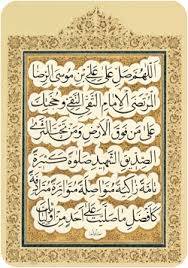 اَللّهُمَّ صَلِّ عَلی عَلِیِّ بْنِ مُوسَی الرِّضَا
الْمُرْتَضَی الْاِمامِ التَّقِیِّ النَّقِیِّ وَ حُجَّتِكَ
عَلی مَنْ فَوْقَ الْاَرْضِ وَ مَنْ تَحْتَ الثَّری
الصِّدّیقِ الشَّهیدِ صَلوةً كَثیرَةً
تامَّةً زاكِیَةً مُتَواصِلَةً مُتَواتِرَةً مُتَرادِفَةً
كَاَفْضَلِ ما صَلَّیْتَ عَلی اَحَدٍ مِنْ اَوْلِیائِكَ